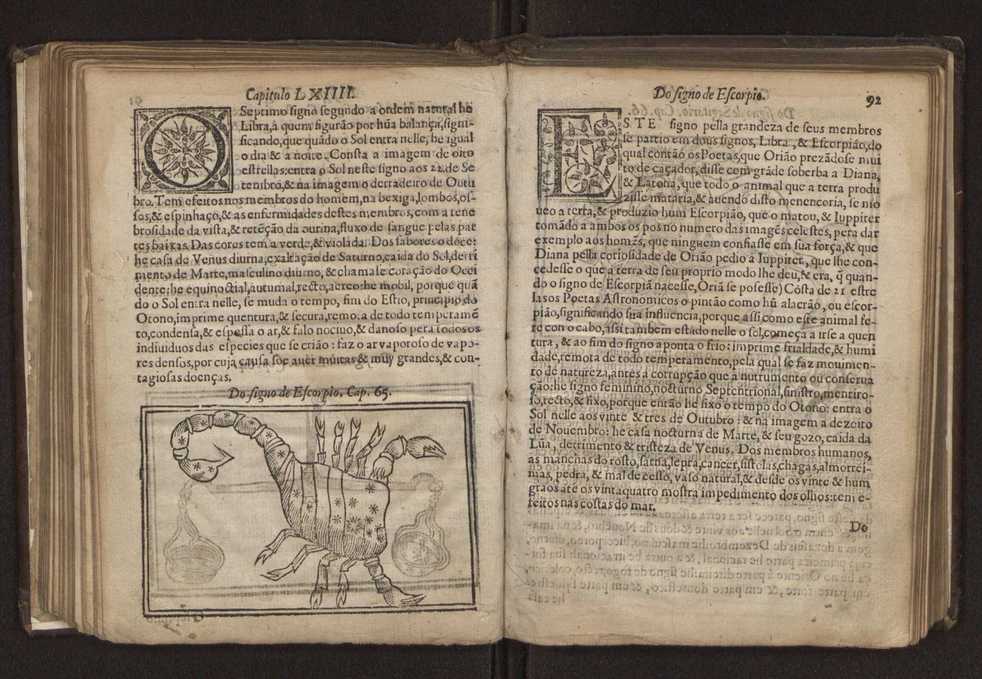 Capitulo LXIIII.
O Septimo signo segundo a ordem natural he
Libra, à quem figurão por hũa balança, signi-
ficando, que quãdo o Sol entra nelle, he igual
o dia & a noite. Consta a imagem de oito
estrellas: entra o Sol neste signo aos 22. de Se
tembro, & na imagem o derradeiro de Outu
bro. Tem efeitos nos membros do homem, na bexiga, lombos, os-
sos, & espinhaço, & as enfermidades destes membros, com a tene
brosidade da vista, & retẽção da ourina, fluxo de sangue pelas par
tes baixas. Das cores tem a verde, & violada. Dos sabores o doce:
he casa de Venus diurna, exaltação de Saturno, caida do Sol, detri
mento de Marte, masculino diurno, & chamase coração do Occi
dente: he equinoctial, autumal, recto, aereo: he mobil, porque quã
do o Sol entra nelle, se muda o tempo, fim do Estio, principio do
Otono, imprime quentura, & secura, remota de todo temperamẽ
to, condensa, & espessa o ar, & faloo nocivo, & danoso pera todos os
individuos das especies que se crião: faz o ar vaporoso de vapo-
res densos, por cuja causa soe auer muitas & muy grandes, & con-
tagiosas doenças.
Do signo de Escorpio. Cap. 65.
Do signo de Escorpio.
92
ESTE signo pella grandeza de seus membros
se partio em dous signos, Libra, & Escorpião, do
qual contão os Poetas, que Orião prezãdose mui
to de caçador, disse com grãde soberba a Diana,
& Latona, que todo o animal que a terra produ
zisse mataria, & auendo disto menencoria, se mo
ueo a terra, & produzio hum Escorpião, que o matou, & Iuppiter
tomãdo a ambos os pos no numero das imagẽs celestes, pera dar
exemplo aos homẽs, que ninguem confiasse em sua força, & que
Diana pella coriosidade de Orião pedio à Iuppiter, que lhe con-
cedesse o que a terra de seu proprio modo lhe deu, & era, q̃ quan-
do o signo de Escorpiã nacesse, Oriã se posesse) Cõsta de 21 estre
las os Poetas Astronomicos o pintão como hũ alacrão, ou escor-
pião, significando sua influencia, porque assi como este animal fe-
re con o cabo, assi tambem estado nelle o sol, começa a irse a quen
tura, & ao fim do signo a ponta o frio: imprime frialdade, & humi
dade, remota de todo temperamento, pela qual se faz mouimen-
to de natureza, antes à corrupção que à nutrumento ou conserua
ção: he signo feminino, nocturno Septentrional, sinistro, mentiro-
so, recto, & fixo, porque então he fixo o tempo do Otono: entra o
Sol nelle aos vinte & tres de Outubro: & na imagem a dezoito
de Nouembro: he casa nocturna de Marte, & seu gozo, caida da
Lũa, detrimento & tristeza de Venus. Dos membros humanos,
as manchas do rosto, sarna, lepra, cancer, fistolas, chagas, almorrei-
mas, pedra, & mal de zesso, vaso natural, & desde os vinte & hum
graos atè os vintaquatro mostra impedimento dos olhos: tem e-
feitos nas costas do mar.
Do